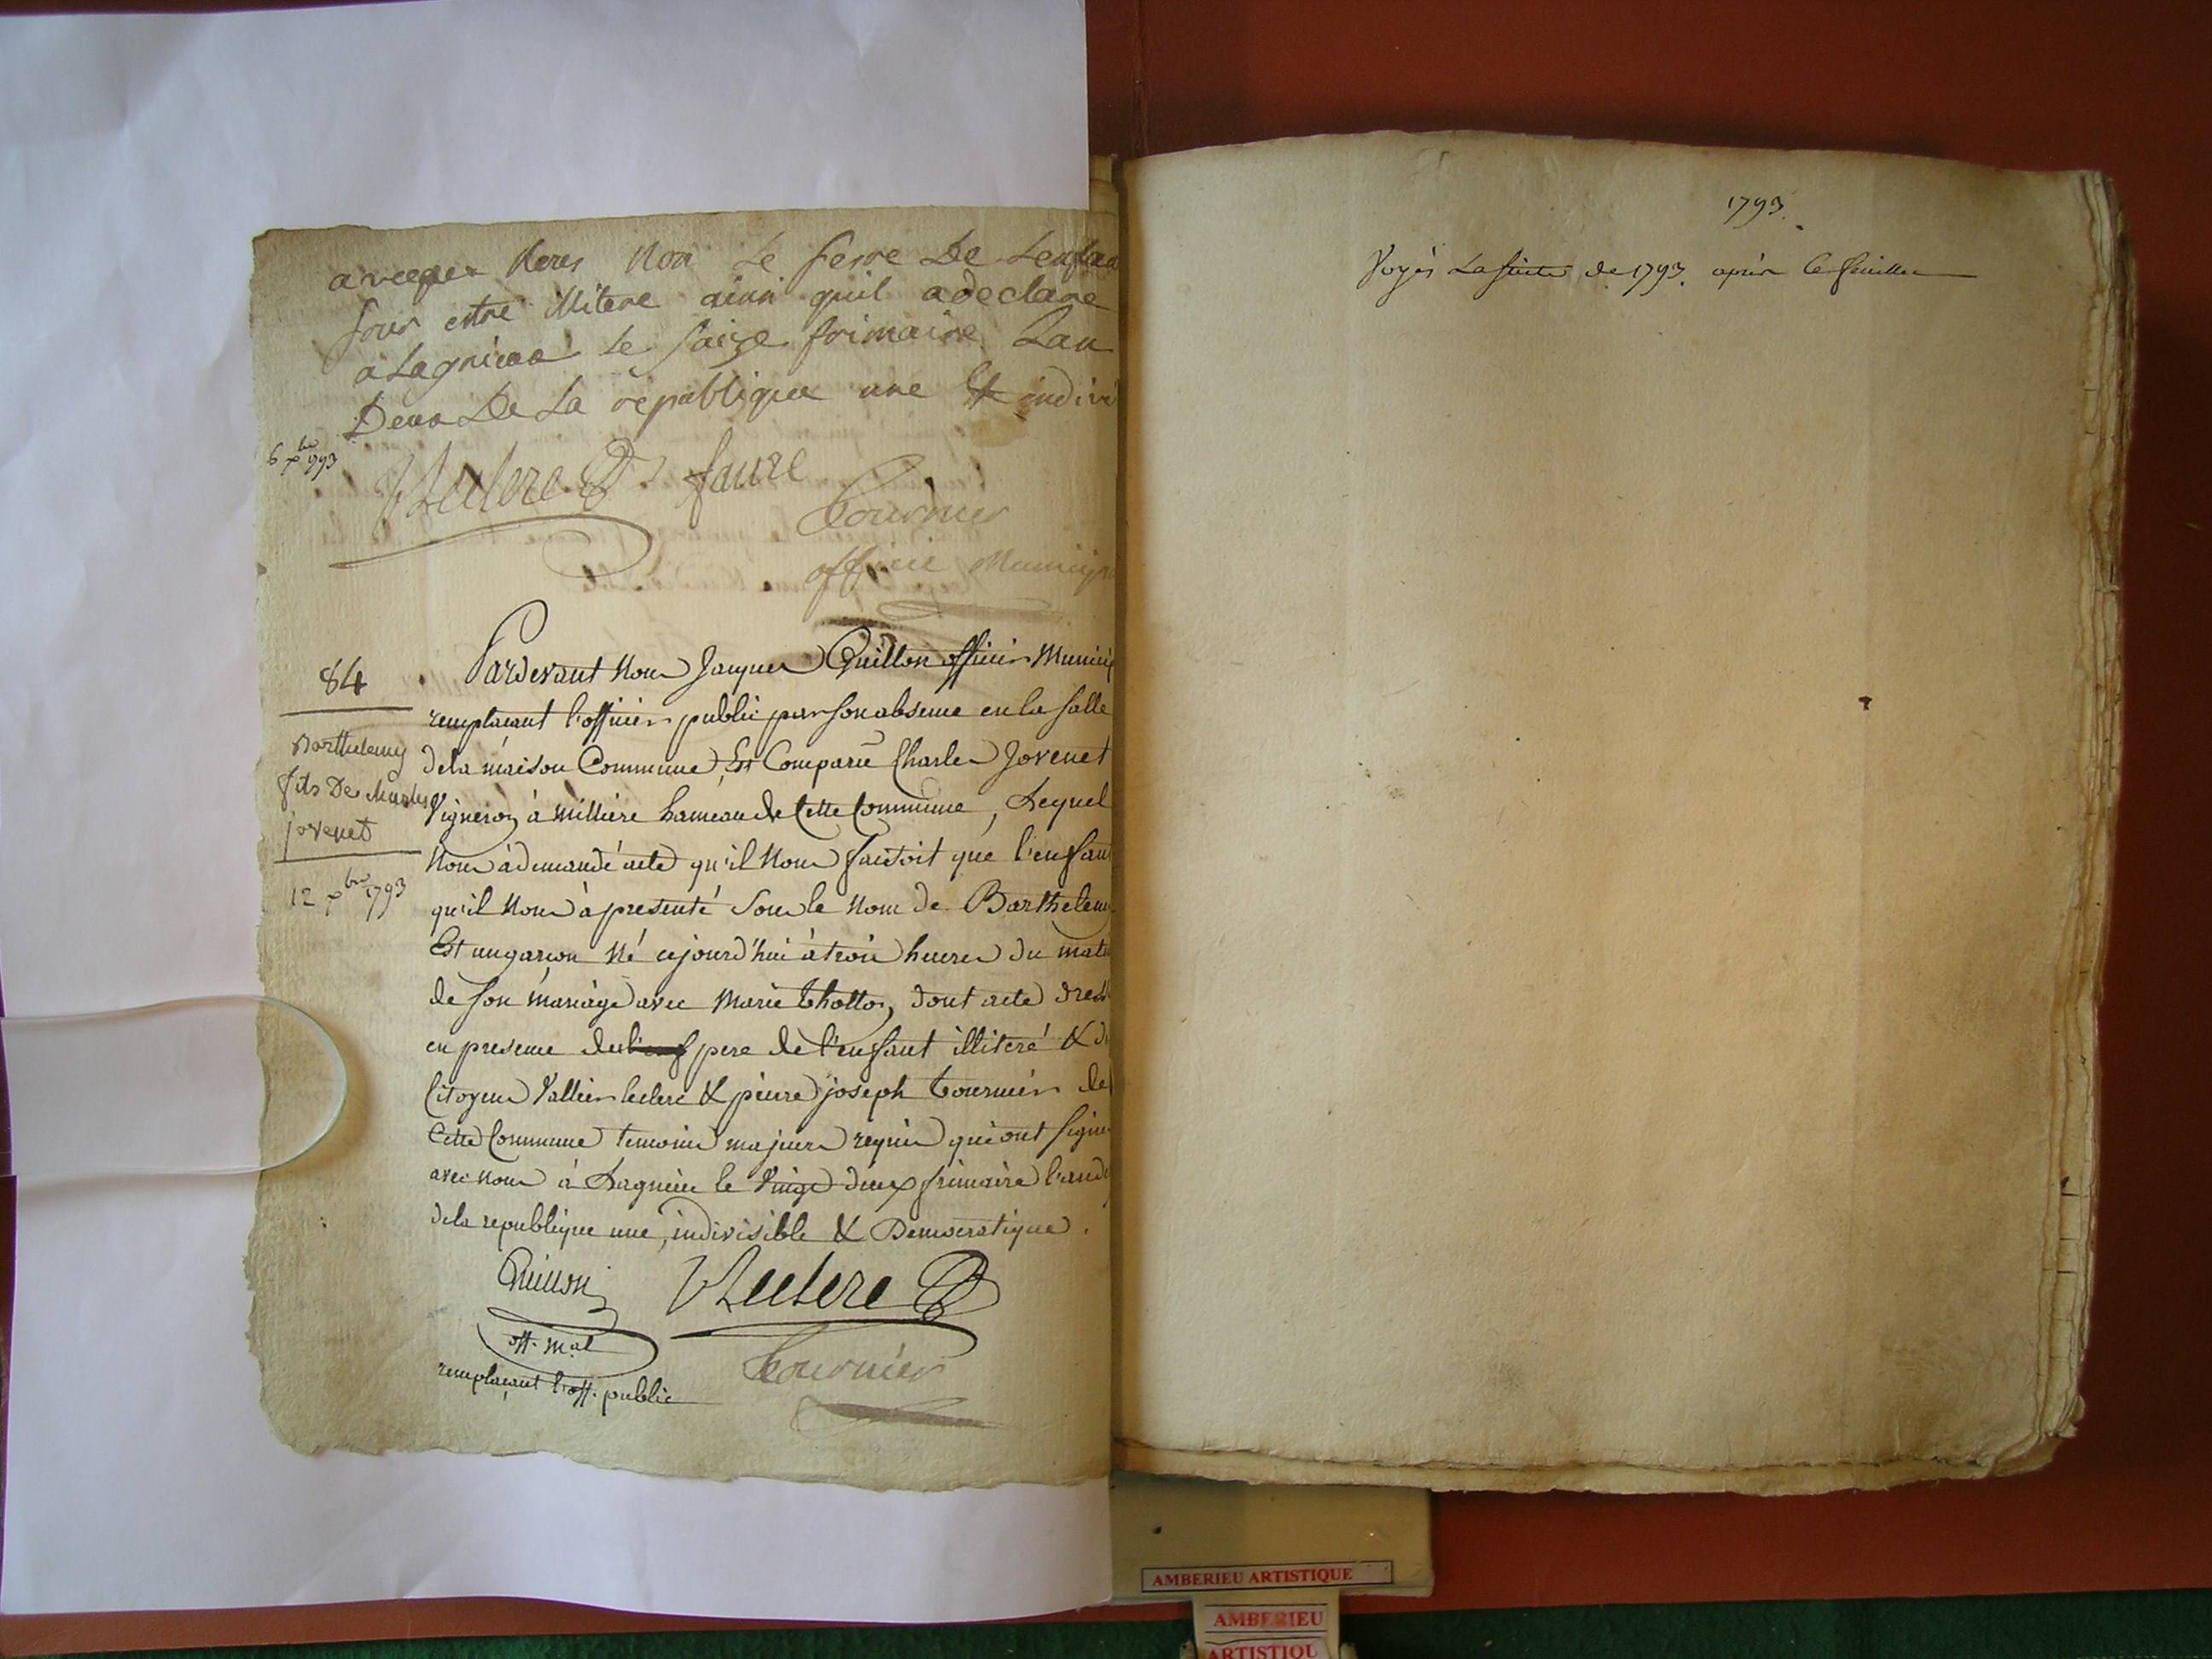 avecque Nous Non Le Perre De Lenfan
Pour estre illitere ainsi quil adeclare
a Lagnieu le saize frimaire Lan
Deux De La republique une & indivi
6 xbre 1793
VLeclerc faure
Tournier
officié Municip
84
Barthelemy
fils De Charles
jovenet
12 xbre 1793
Pardevant Nous Jacques Guillon officier Municip
remplaçant l'officier public par son absence en la salle
de la maison Commune, Est Comparu Charles Jovenet
Vigneron à Milliere hameau de Cette Commune, Lequel
Nous à demandé acte qu'il Nous faisoit que l'enfant
qu'il Nous à presenté sous le Nom de Barthelemy
Est un garçon Né cejourd'hui à trois heures du mati
de son mariage avec Marie Tholton, dont acte dressé
en presence du pere de l'enfant illiteré & d
Citoyens Vallier leclerc & pierre joseph tournier de
Cette Commune temoins majeurs requis qui ont signé
avec nous à Lagnieu le Vingt deux frimaire l'an d
de la republique une, indivisible & Democratique.
Guillon VLeclerc
off. mal
remplaçant l'off. public
Tournier
1793.
Voyés La suitte de 1793. après ce feuillet
AMBERIEU ARTISTIQUE
AMBERIEU
ARTISTIQU